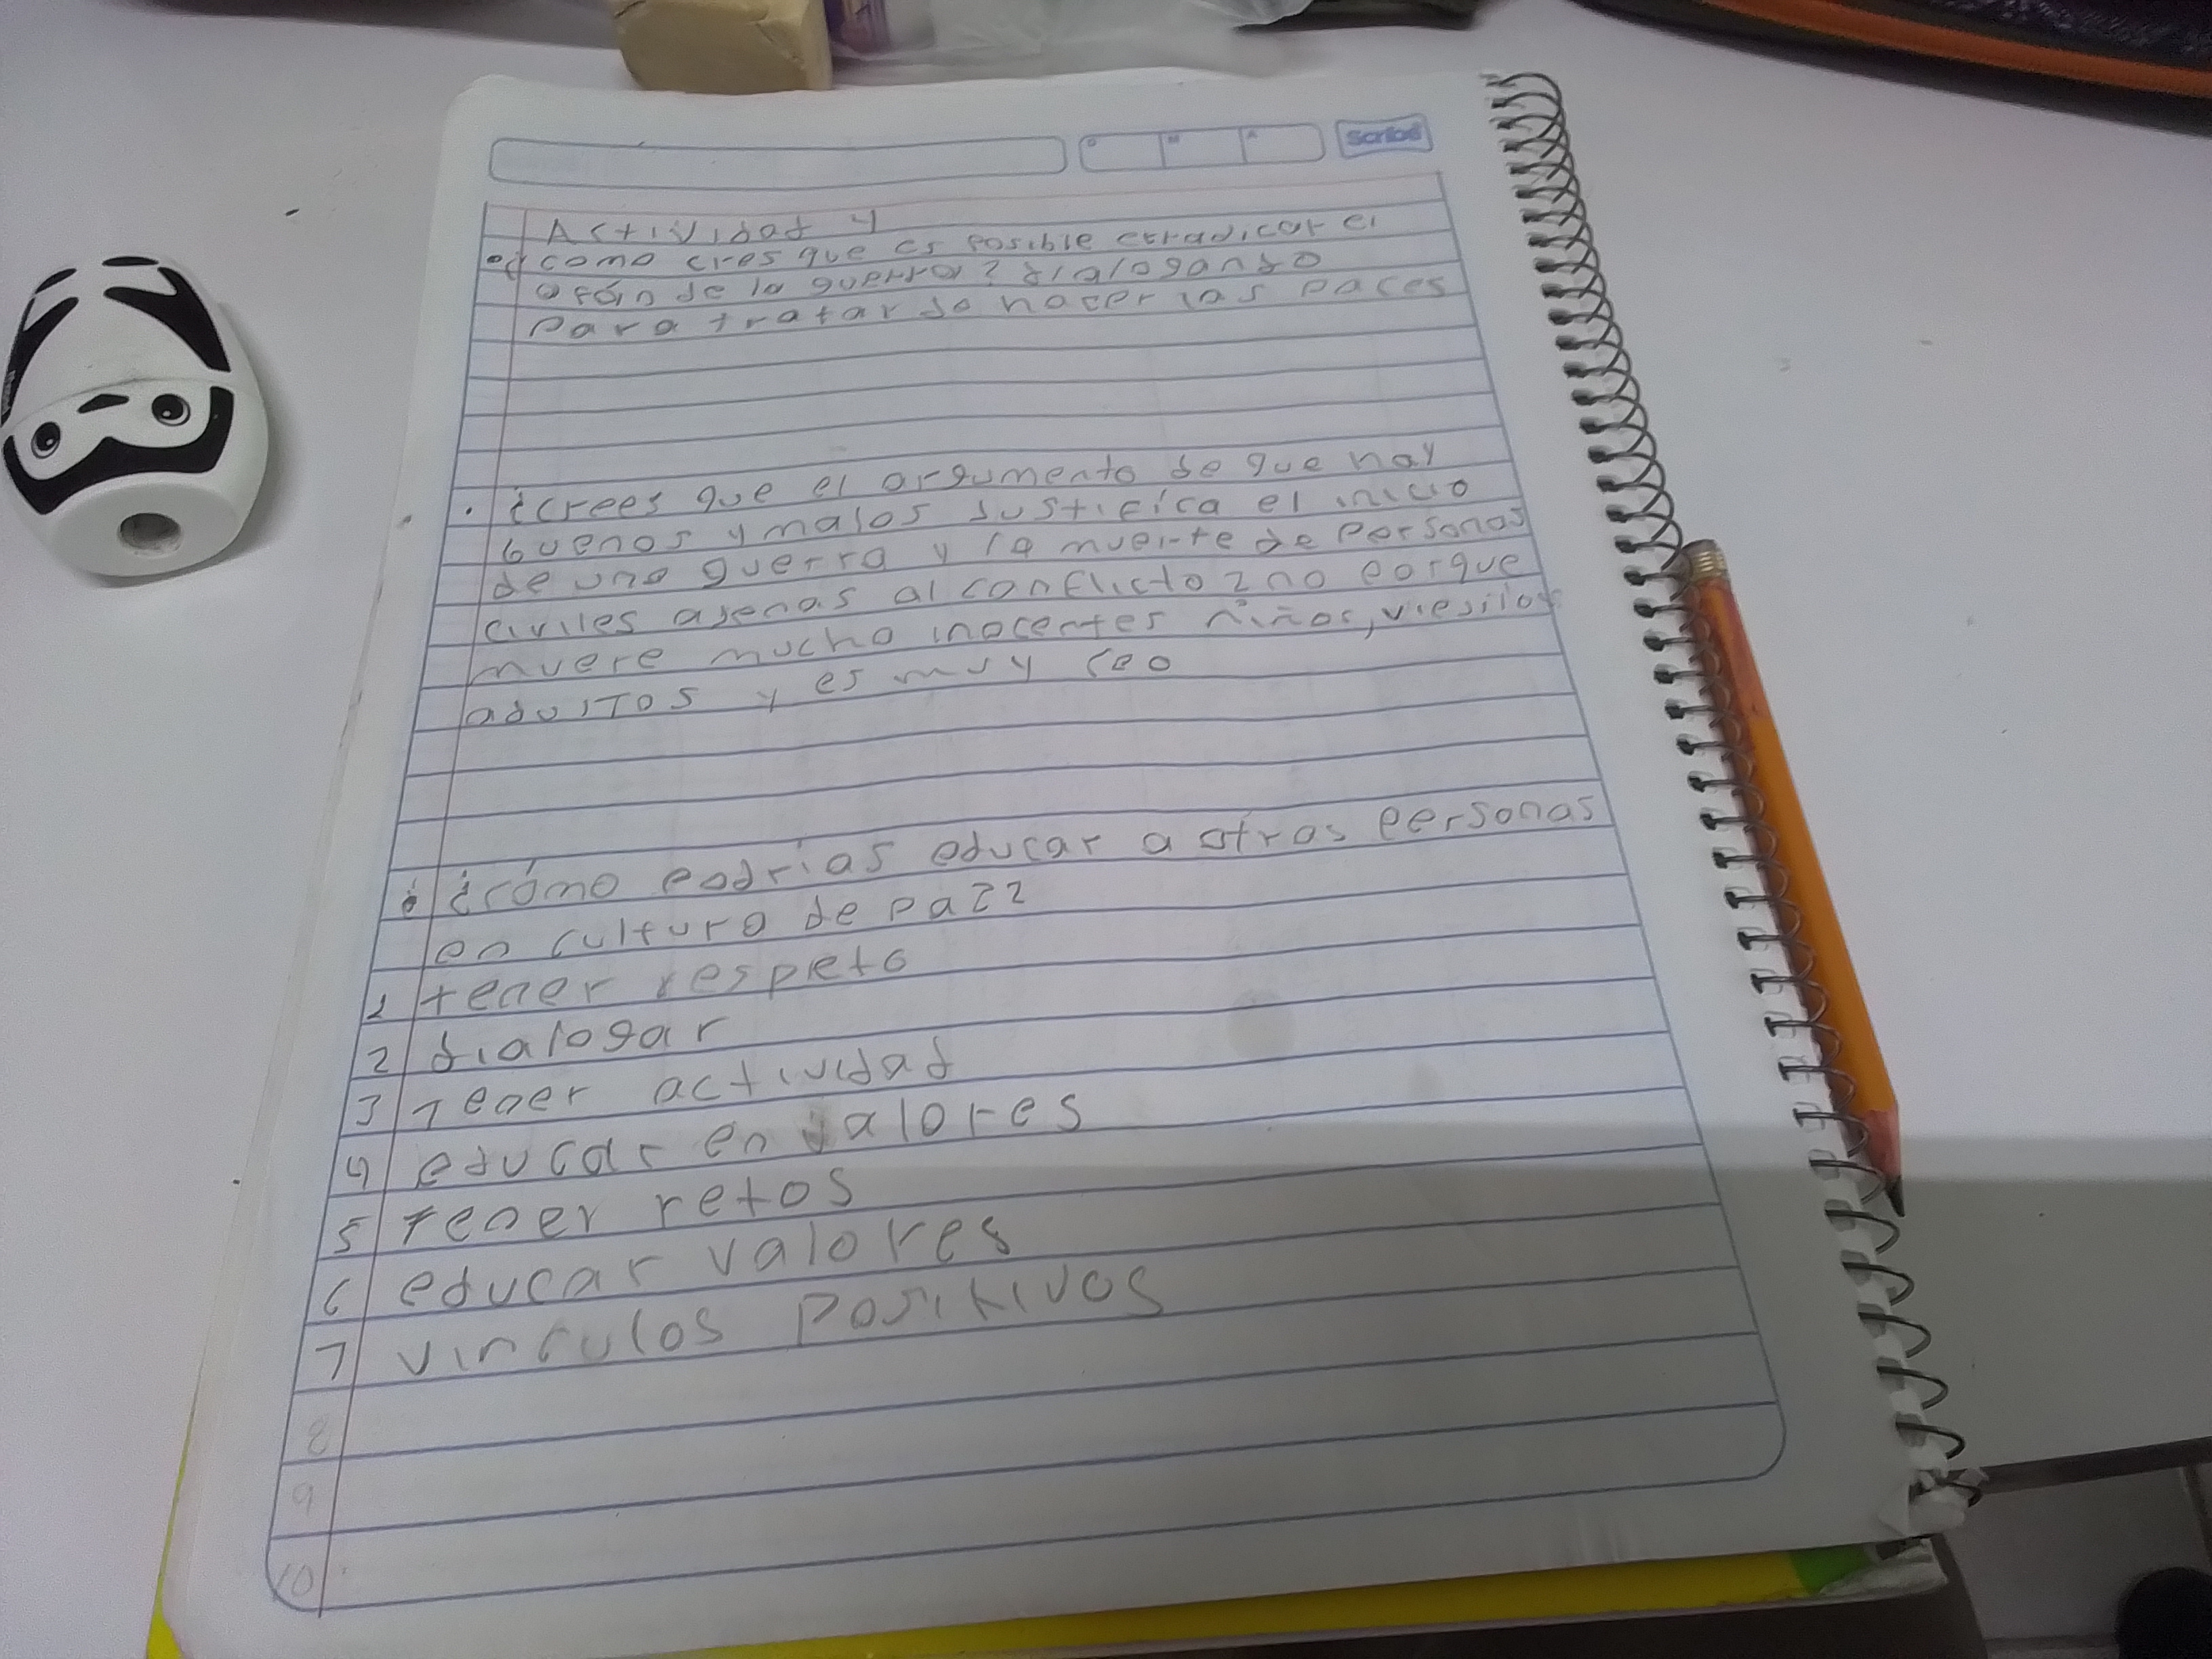 Scribe
Actividad 4
¿como cres que es posible erradicar el
afán de la guerra? dialogando
para tratar de hacer las paces
. ¿crees que el argumento de que hay
buenos y malos justifica el inicio
de una guerra y la muerte de personas
civiles ajenas al conflicto? no porque
muere mucho inocentes niños, viejitos
adultos y es muy feo
¿cómo podrías educar a otras personas
en cultura de paz?
1 tener respeto
2 dialogar
3 tener actividad
4 educar en valores
5 tener retos
6 educar valores
7 vinculos positivos
8
9
10